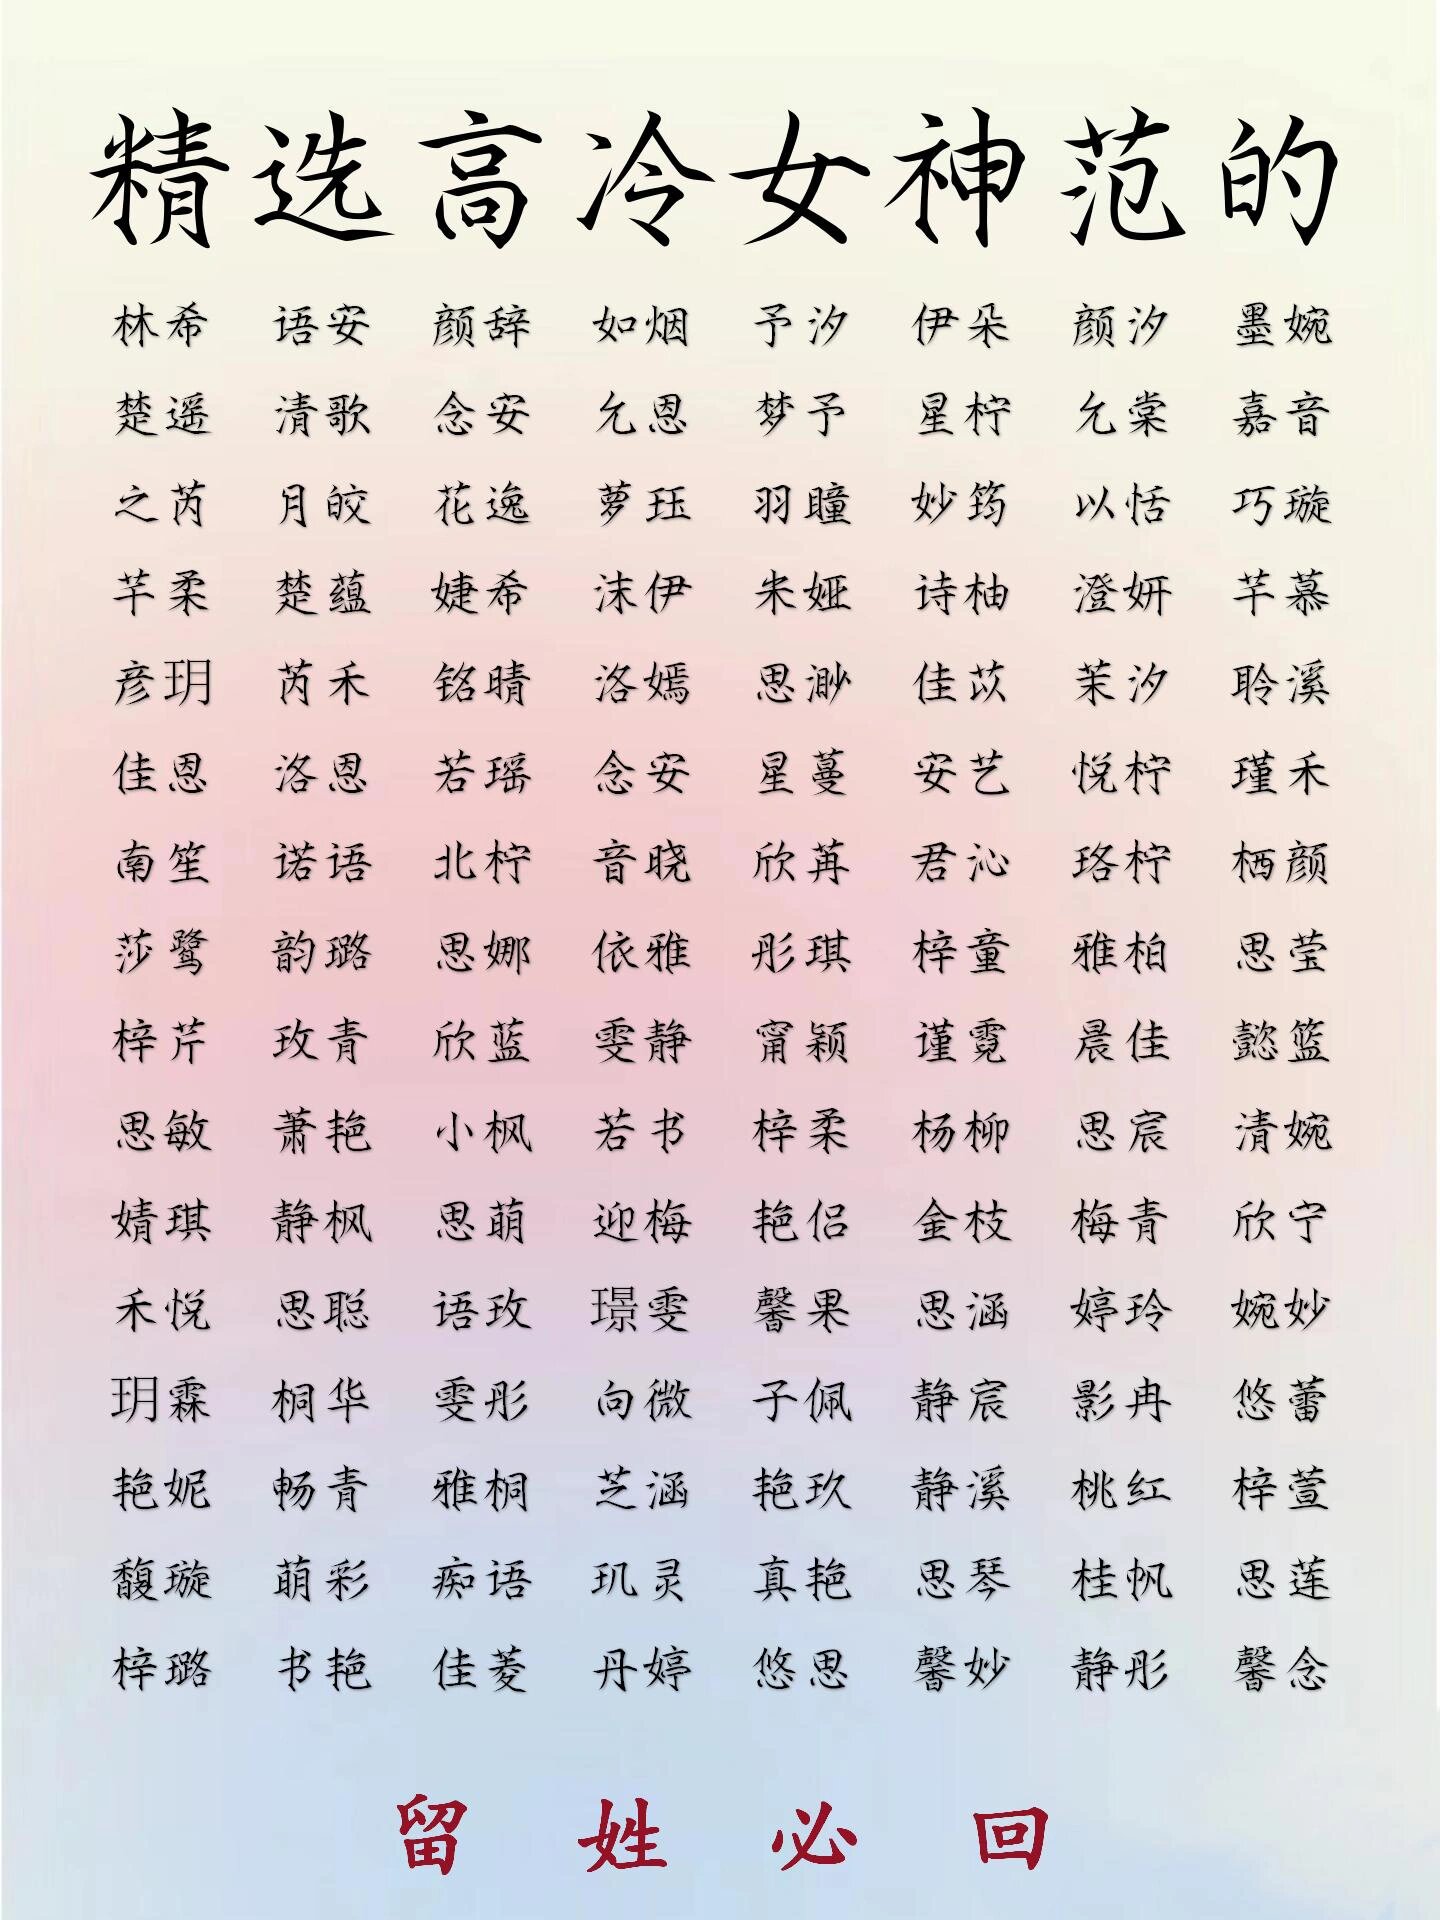 精选高冷女神范的
林希 语安 颜辞 如烟 予汐 伊朵 颜汐 墨婉
楚遥 清歌 念安 允恩 梦予 星柠 允棠 嘉音
之芮 月皎 花逸 萝珏 羽瞳 妙筠 以恬 巧璇
芊柔 楚蕴 婕希 沫伊 米娅 诗柚 澄妍 芊慕
彦玥 芮禾 铭晴 洛嫣 思渺 佳苡 茉汐 聆溪
佳恩 洛恩 若瑶 念安 星蔓 安艺 悦柠 瑾禾
南笙 诺语 北柠 音晓 欣苒 君沁 珞柠 栖颜
莎鹭 韵璐 思娜 依雅 彤琪 梓童 雅柏 思莹
梓芹 玫青 欣蓝 雯静 甯颖 谨霓 晨佳 懿篮
思敏 萧艳 小枫 若书 梓柔 杨柳 思宸 清婉
婧琪 静枫 思萌 迎梅 艳侣 金枝 梅青 欣宁
禾悦 思聪 语玫 璟雯 馨果 思涵 婷玲 婉妙
玥霖 桐华 雯彤 向微 子佩 静宸 影冉 悠蕾
艳妮 畅青 雅桐 芝涵 艳玖 静溪 桃红 梓萱
馥璇 萌彩 痴语 玑灵 真艳 思琴 桂帆 思莲
梓璐 书艳 佳菱 丹婷 悠思 馨妙 静彤 馨念
留姓必回